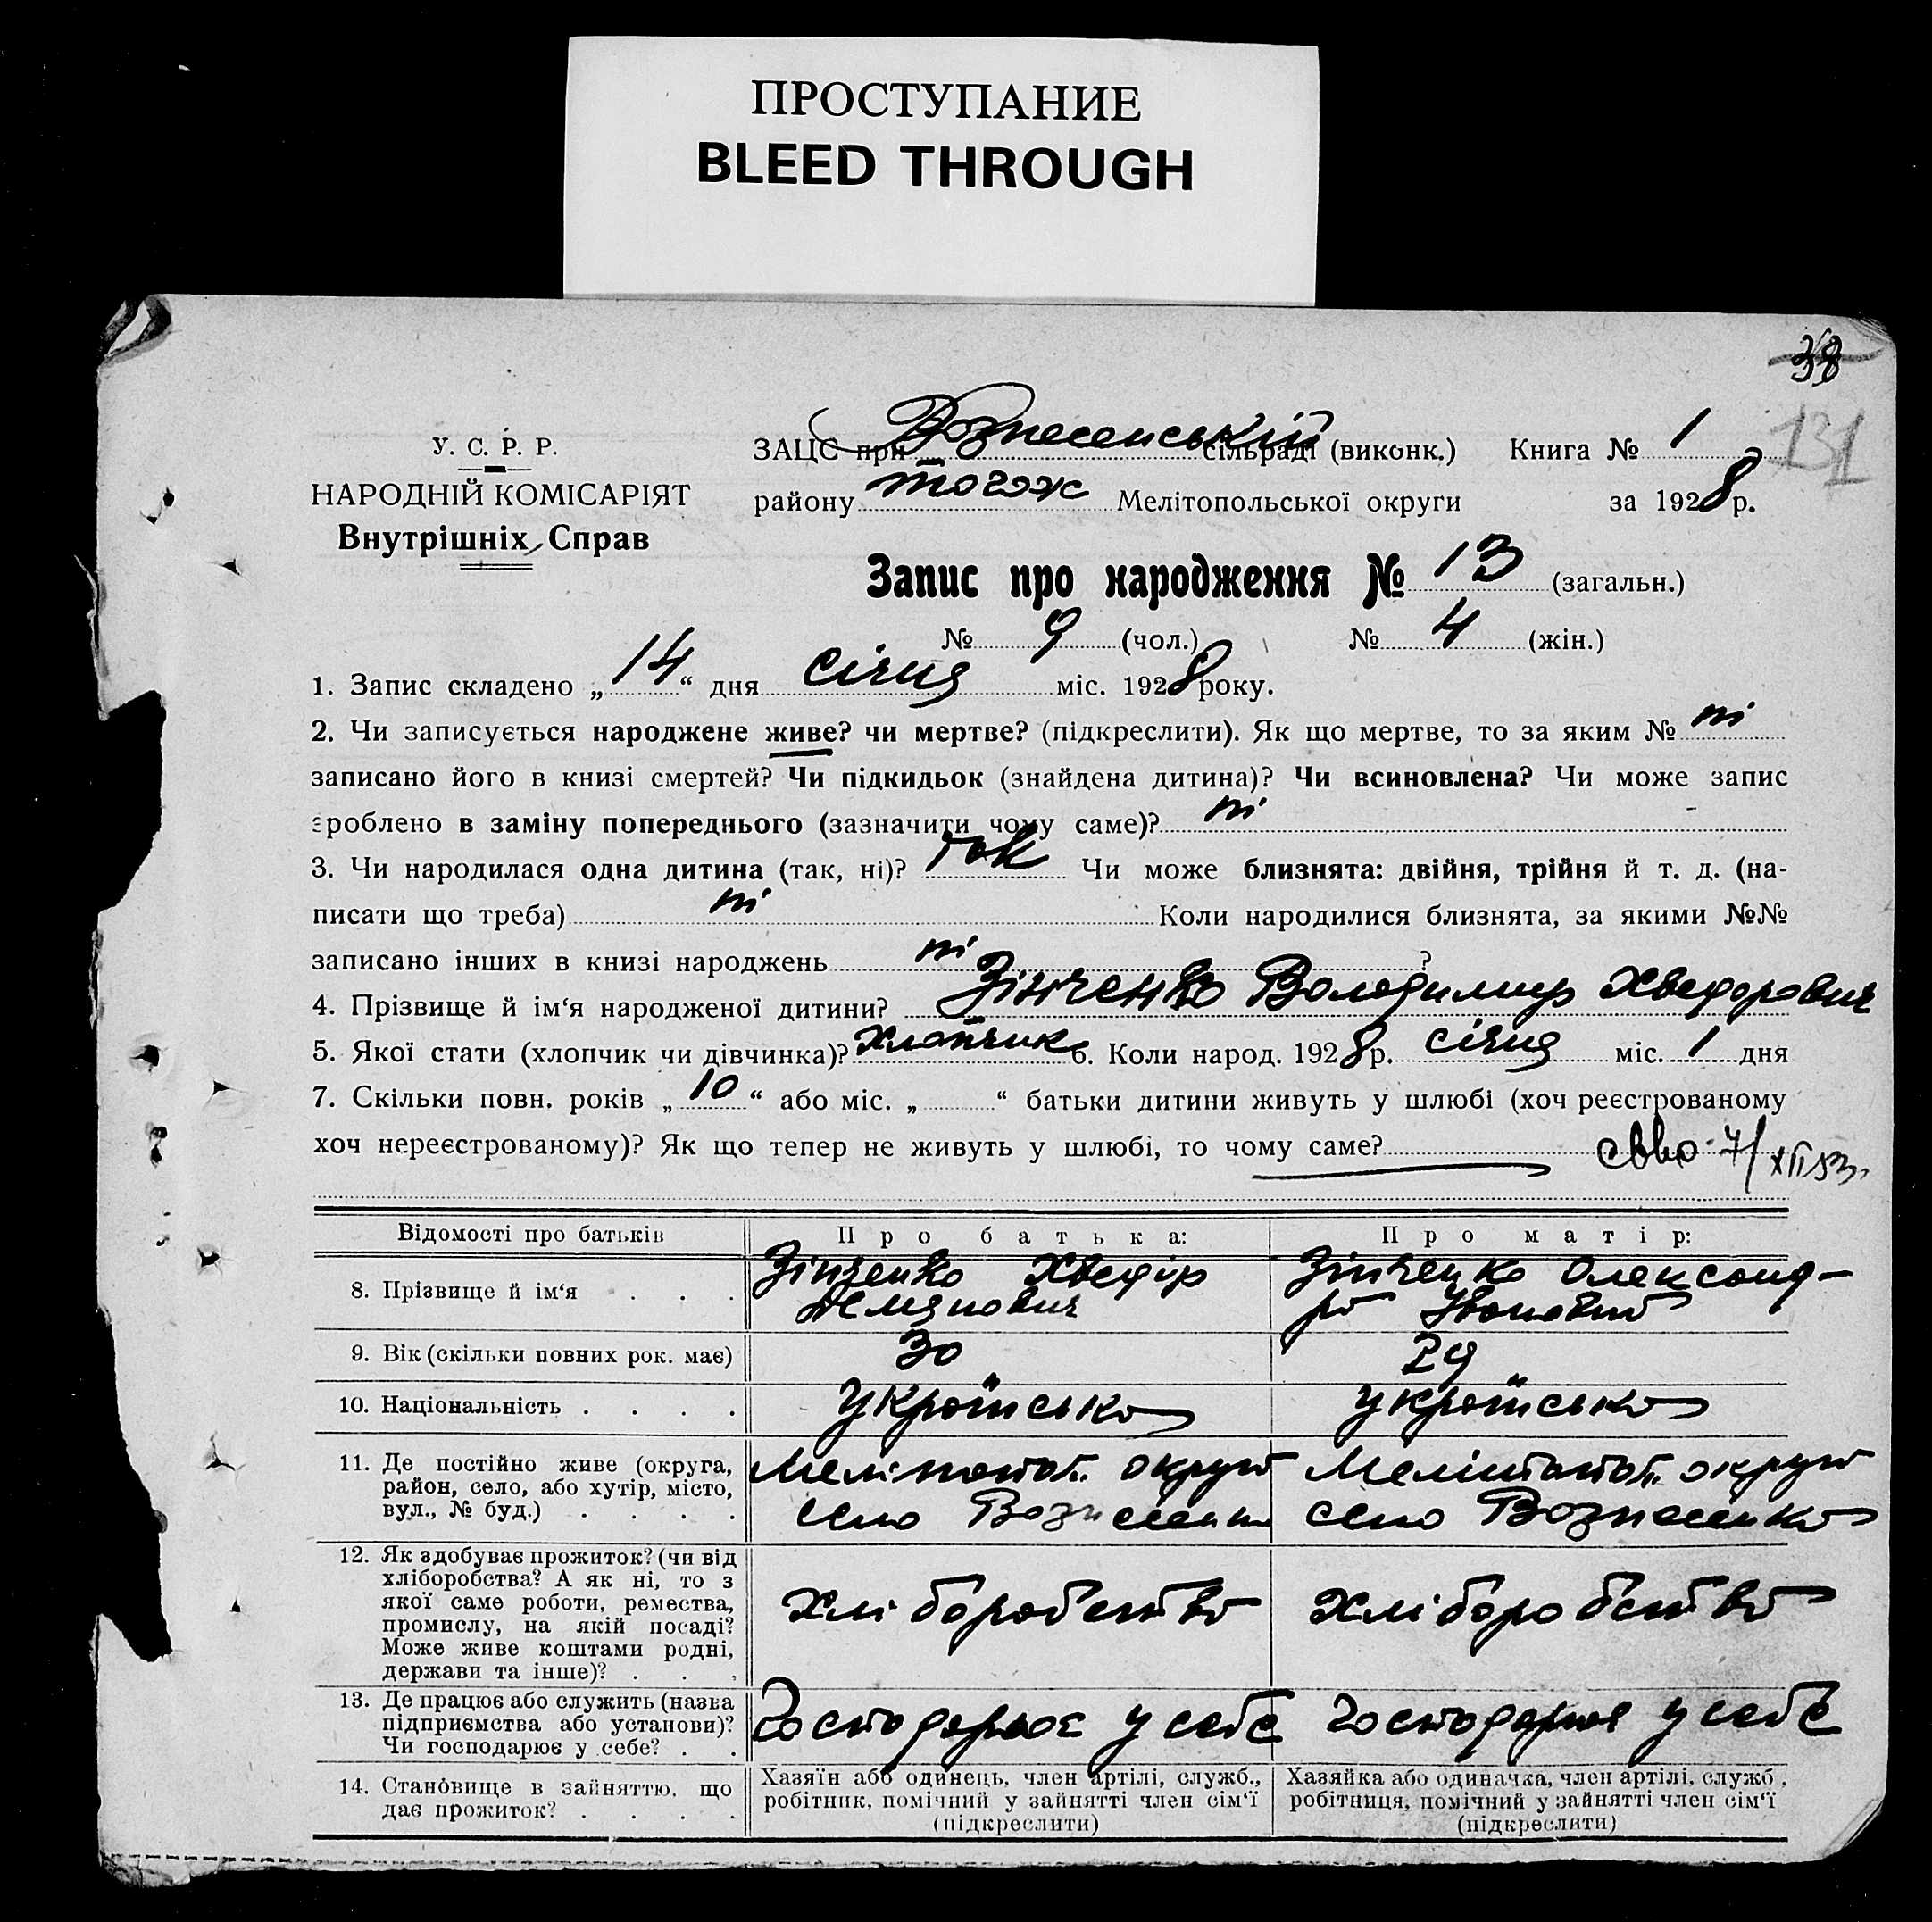 ПРОСТУПАНИЕ
BLEED THROUGH
38
131
У. С. Р. Р.
НАРОДНІЙ КОМІСАРІЯТ
Внутрішніх Справ
ЗАЦС при Вознесенській сільраді (виконк.) Книга № 1
району того ж Мелітопольської округи за 1928 р.
Запис про народження № 13 (загальн.)
№ 9 (чол.) № 4 (жін.)
1. Запис складено „14“ дня січня міс. 1928 року.
2. Чи записується народжене живе? чи мертве? (підкреслити). Як що мертве, то за яким № ні
записано його в книзі смертей? Чи підкидьок (знайдена дитина)? Чи всиновлена? Чи може запис
зроблено в заміну попереднього (зазначити чому саме)? ні
3. Чи народилася одна дитина (так, ні)? так Чи може близнята: двійня, трійня й т. д. (на-
писати що треба) ні Коли народилися близнята, за якими №№
записано інших в книзі народжень ні ?
4. Прізвище й ім‘я народженої дитини? Зінченко Володимир Хведорович
5. Якої стати (хлопчик чи дівчинка)? Хлопчик 6. Коли народ. 1928 р. січня міс. 1 дня
7. Скільки повн. років „10“ або міс. „ “ батьки дитини живуть у шлюбі (хоч реєстрованому
хоч нереєстрованому)? Як що тепер не живуть у шлюбі, то чому саме?
Відомості про батьків
Про батька:
Про матір:
8. Прізвище й ім‘я . . .
Зінченко Хведір
Демянович
Зінченко Олександ-
ра Іванівна
9. Вік (скільки повних рок. має)
30
29
10. Національність . . . .
українська
українська
11. Де постійно живе (округа,
район, село, або хутір, місто,
вул., № буд.) . . . .
Меліпопол. округа
село Вознесенка
Меліптопол. округа
село Вознесенка
12. Як здобуває прожиток? (чи від
хліборобства? А як ні, то з
якої саме роботи, ремества,
промислу, на якій посаді?
Може живе коштами родні,
держави та інше)? . . .
хліборобство
хліборобство
13. Де працює або служить (назва
підприємства або установи)?
Чи господарює у себе? . .
Господарює у себе
господарює у себе
14. Становище в зайняттю, що
дає прожиток? . . . .
Хазяїн або одинець, член артілі, служб.,
робітник, помічний у зайнятті член сім‘ї
(підкреслити)
Хазяйка або одиначка, член артілі, служб.,
робітниця, помічний у зайнятті член сім‘ї
(підкреслити)